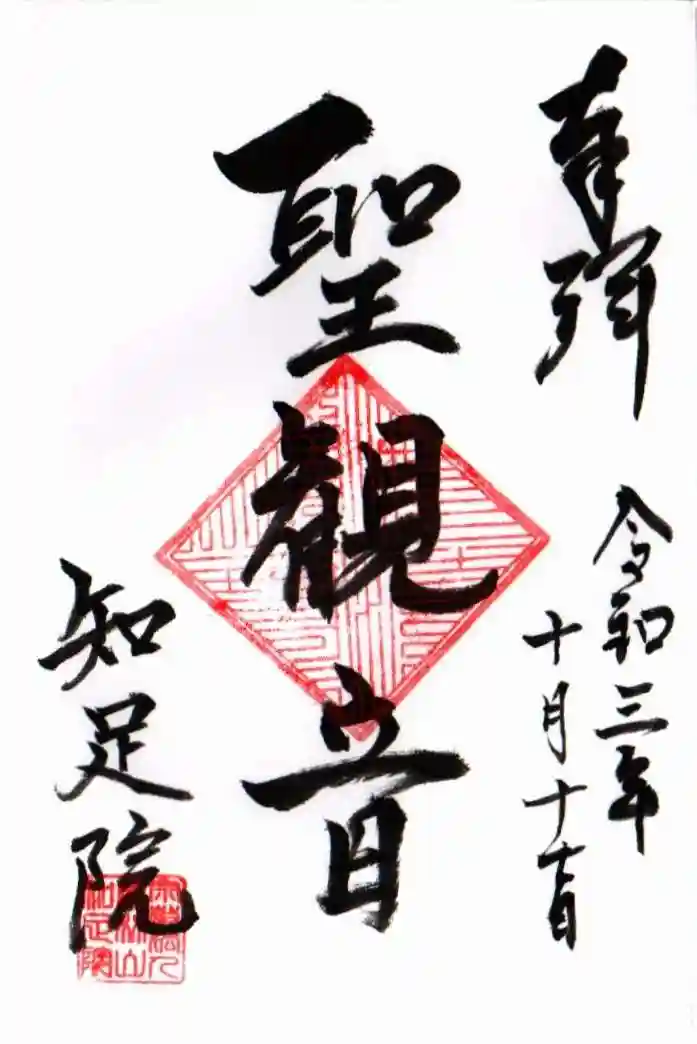 奉拝
令和三年
十月十日
聖觀音
知足院